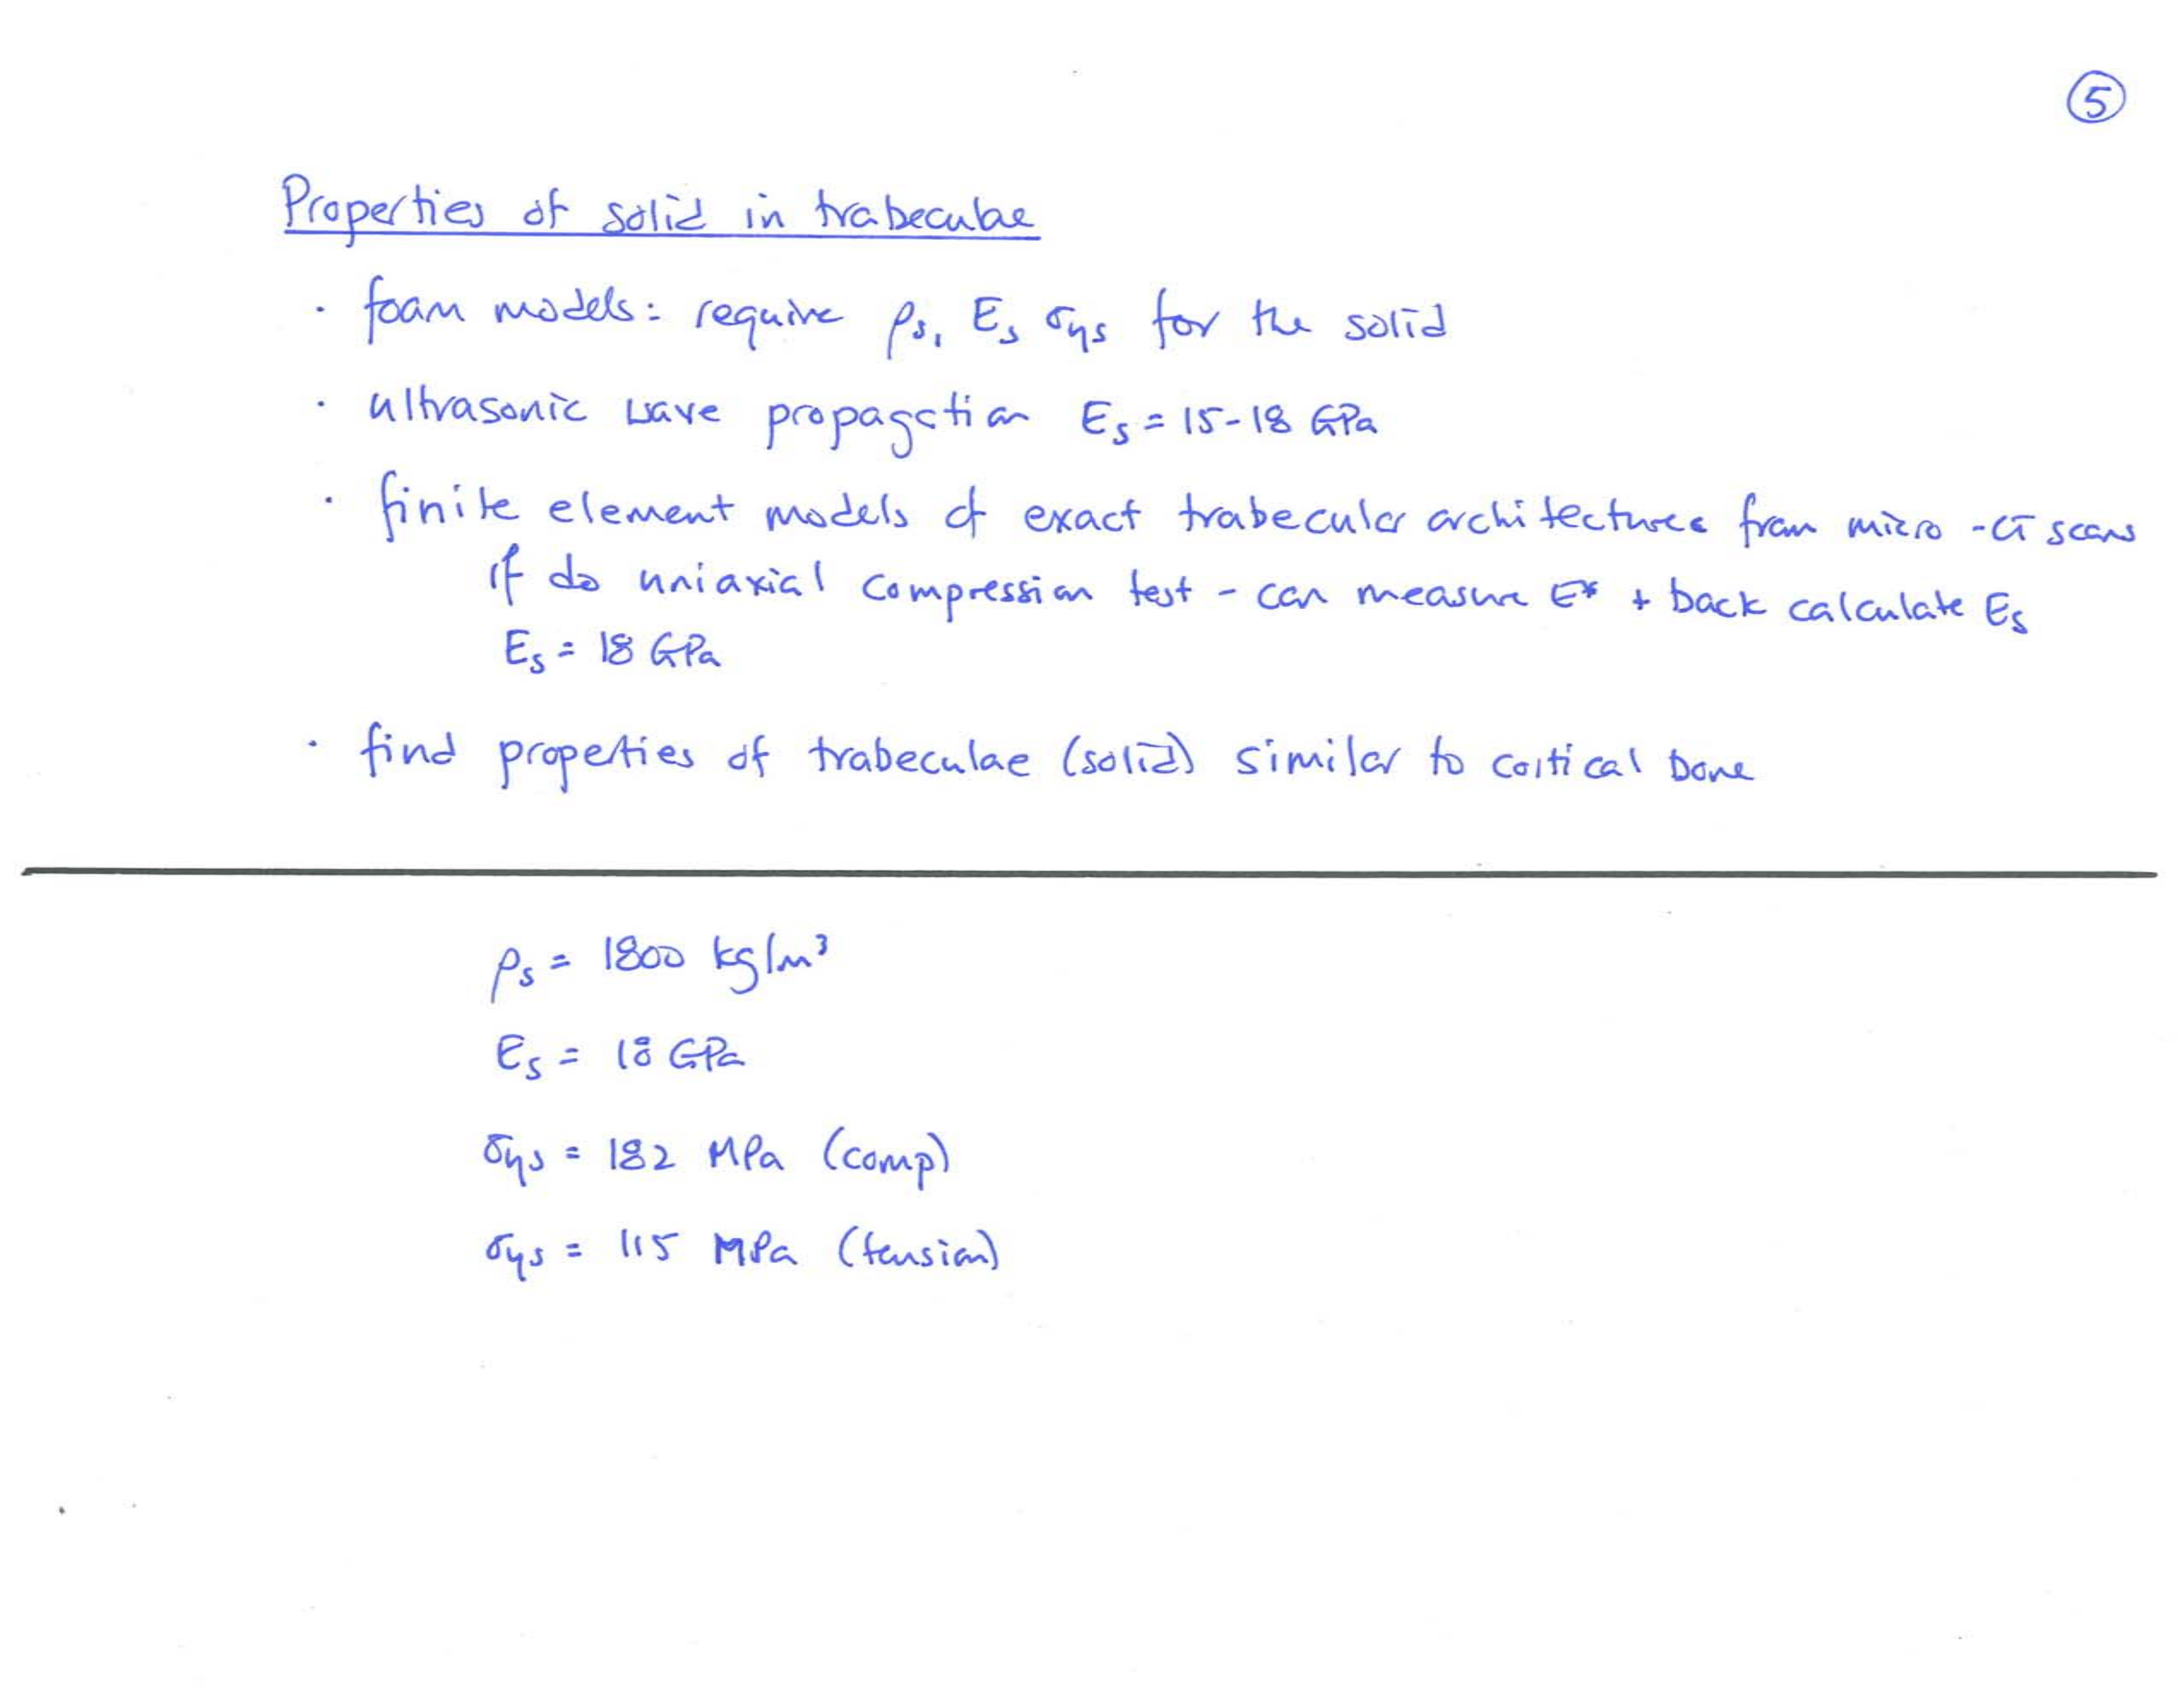 5
Properties of solid in trabeculae
· foam models: require ρs, Es σys for the solid
· ultrasonic wave propagation Es = 15-18 GPa
· finite element models of exact trabecular architectures from micro-CT scans
if do uniaxial compression test - can measure E* + back calculate Es
Es = 18 GPa
· find properties of trabeculae (solid) similar to cortical bone
ρs = 1800 kg/m³
Es = 18 GPa
σys = 182 MPa (comp)
σys = 115 MPa (tension)